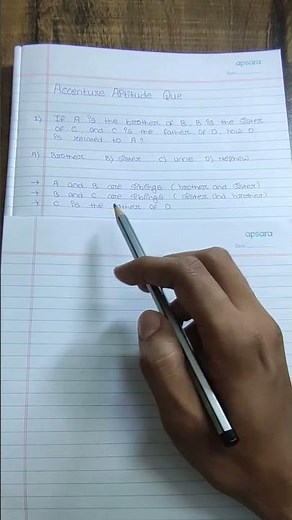 apsara
Date:
Accenture Aptitude Que
If A is the brother of B, B is the sister
of C and C is the father of D, how D
is related to A?
A) Brother B) Sister C) Uncle D) Nephew
→ A and B are siblings (brother and sister)
→ B and C are siblings (sister and brother)
→ C is the father of D
apsara